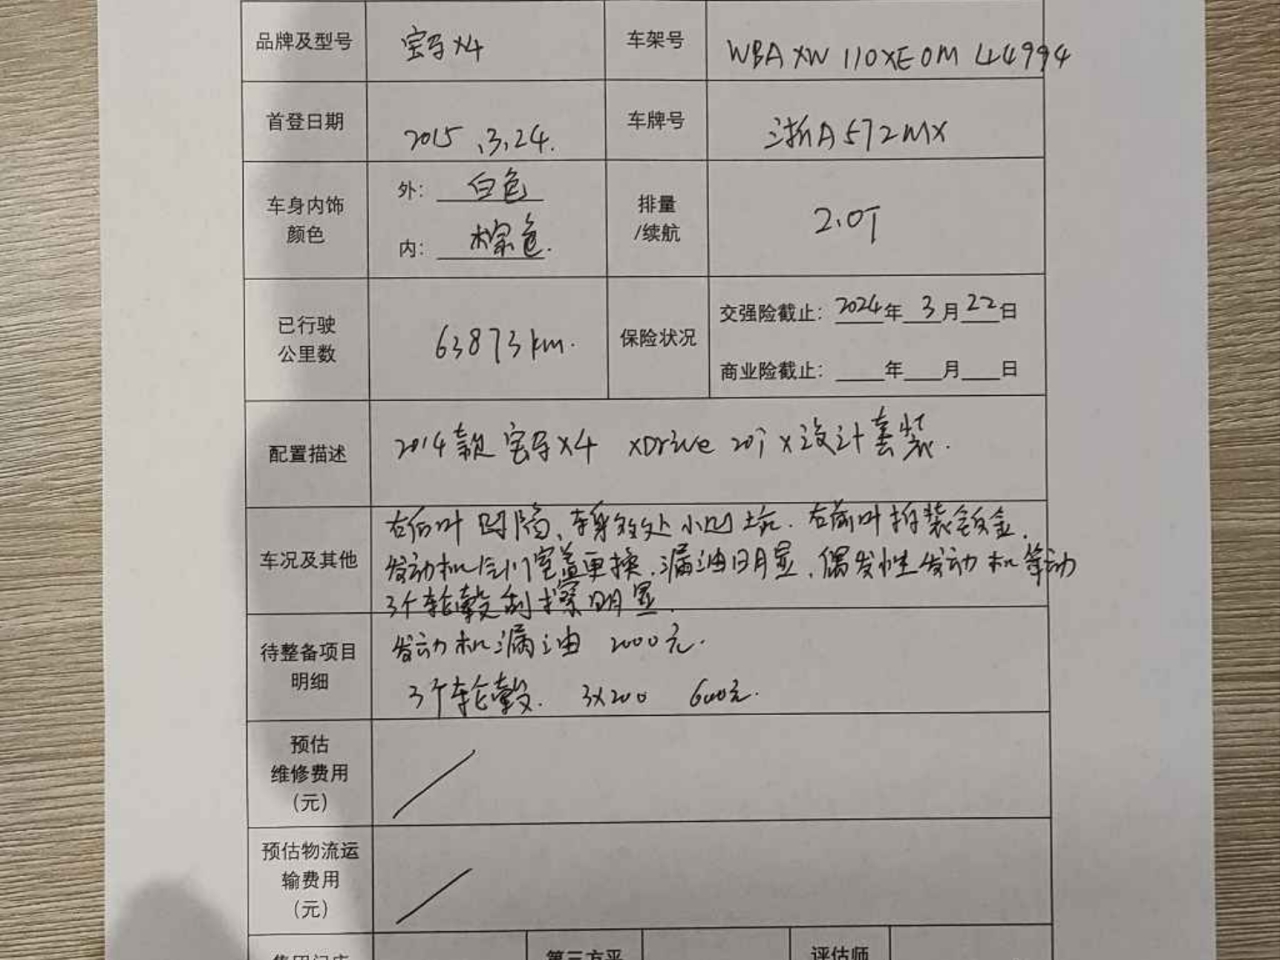 品牌及型号 宝马X4 车架号 WBAXW110XE0M44994
首登日期 2015.3.24. 车牌号 浙A572MX
车身内饰颜色 外：白色 内：棕色. 排量/续航 2.0T
已行驶公里数 63873km. 保险状况 交强险截止：2024年3月22日
商业险截止：___年___月___日
配置描述 2014款宝马X4 xDrive 20i X设计套装.
车况及其他 右后叶凹陷、车身多处小凹坑. 右前叶拆装钣金.
发动机气门室盖更换. 漏油明显. 偶发性发动机异动
3个轮毂刮擦明显.
待整备项目明细 发动机漏油 2000元.
3个轮毂. 3x200 600元.
预估维修费用（元） /
预估物流运输费用（元） /
第三方平 评估师